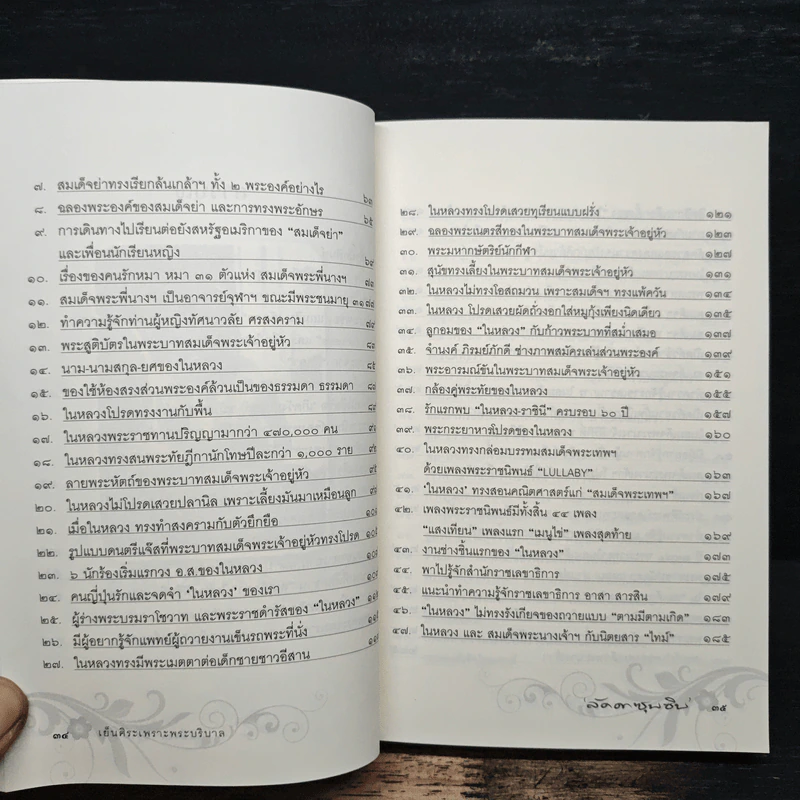 ๗. สมเด็จย่าทรงเรียกล้นเกล้าฯ ทั้ง ๒ พระองค์อย่างไร ๖๑
๘. ฉลองพระองค์ของสมเด็จย่า และการทรงพระอักษร ๖๕
๙. การเดินทางไปเรียนต่อยังสหรัฐอเมริกาของ "สมเด็จย่า"
และเพื่อนนักเรียนหญิง ๖๙
๑๐. เรื่องของคนรักหมา หมา ๓๑ ตัวแห่ง สมเด็จพระพี่นางฯ
๑๑. สมเด็จพระพี่นางฯ เป็นอาจารย์จุฬาฯ ขณะมีพระชนมายุ
๑๒. ทำความรู้จักท่านผู้หญิงทัศนาวลัย ศรสงคราม
๑๓. พระสูติบัตรในพระบาทสมเด็จพระเจ้าอยู่หัว
๑๔. นาม-นามสกุล-ยศของในหลวง
๑๕. ของใช้ห้องสรงส่วนพระองค์ล้วนเป็นของธรรมดา ธรรมดา
๑๖. ในหลวงโปรดทรงงานกับพื้น
๑๗. ในหลวงพระราชทานปริญญามากว่า ๔๗๐,๐๐๐ คน
๑๘. ในหลวงทรงสนพระทัยฎีกานักโทษปีละกว่า ๑,๐๐๐ ราย
๑๙. ลายพระหัตถ์ของพระบาทสมเด็จพระเจ้าอยู่หัว
๒๐. ในหลวงไม่โปรดเสวยปลานิล เพราะเลี้ยงมันมาเหมือนลูก
๒๑. เมื่อในหลวง ทรงทำสงครามกับตัวยึกยือ
๒๒. รูปแบบดนตรีแจ๊สที่พระบาทสมเด็จพระเจ้าอยู่หัวทรงโปรด
๒๓. ๖ นักร้องเริ่มแรกวง อ.ส.ของในหลวง
๒๔. คนญี่ปุ่นรักและจดจำ 'ในหลวง' ของเรา
๒๕. ผู้ร่างพระบรมราโชวาท และพระราชดำรัสของ "ในหลวง"
๒๖. มีผู้อยากรู้จักแพทย์ผู้ถวายงานเข็นรถพระที่นั่ง
๒๗. ในหลวงทรงมีพระเมตตาต่อเด็กชายชาวอีสาน
๓๔ เย็นศิระเพราะพระบริบาล
๒๘. ในหลวงทรงโปรดเสวยทุเรียนแบบฝรั่ง ๑๒๑
๒๙. ฉลองพระเนตรสีทองในพระบาทสมเด็จพระเจ้าอยู่หัว ๑๒๓
๓๐. พระมหากษัตริย์นักกีฬา ๑๒๗
๓๑. สุนัขทรงเลี้ยงในพระบาทสมเด็จพระเจ้าอยู่หัว ๑๓๑
๓๒. ในหลวงไม่ทรงโอสถมวน เพราะสมเด็จฯ ทรงแพ้ควัน ๑๓๔
๓๓. ในหลวง โปรดเสวยผัดถั่วงอกใส่หมูกุ้งเพียงนิดเดียว ๑๓๕
๓๔. ลูกอมของ "ในหลวง" กับก้าวพระบาทที่สม่ำเสมอ ๑๓๗
๓๕. จำนงค์ ภิรมย์ภักดี ช่างภาพสมัครเล่นส่วนพระองค์ ๑๓๙
๓๖. พระอารมณ์ขันในพระบาทสมเด็จพระเจ้าอยู่หัว ๑๕๑
๓๗. กล้องคู่พระทัยของในหลวง ๑๕๓
๓๘. รักแรกพบ "ในหลวง-ราชินี" ครบรอบ ๖๐ ปี ๑๕๗
๓๙. พระกระยาหารโปรดของในหลวง ๑๖๐
๔๐. ในหลวงทรงกล่อมบรรทมสมเด็จพระเทพฯ
ด้วยเพลงพระราชนิพนธ์ "LULLABY" ๑๖๓
๔๑. 'ในหลวง' ทรงสอนคณิตศาสตร์แก่ "สมเด็จพระเทพฯ" ๑๖๗
๔๒. เพลงพระราชนิพนธ์มีทั้งสิ้น ๔๔ เพลง
"แสงเทียน" เพลงแรก "เมนูไข่" เพลงสุดท้าย ๑๖๙
๔๓. งานช่างชิ้นแรกของ "ในหลวง" ๑๗๓
๔๔. พาไปรู้จักสำนักราชเลขาธิการ ๑๗๕
๔๕. แนะนำทำความรู้จักราชเลขาธิการ อาสา สารสิน ๑๗๙
๔๖. "ในหลวง" ไม่ทรงรังเกียจของถวายแบบ "ตามมีตามเกิด" ๑๘๓
๔๗. ในหลวง และ สมเด็จพระนางเจ้าฯ กับนิตยสาร "ไทม์" ๑๘๕
ลัดดาซุบซิบ ๓๕